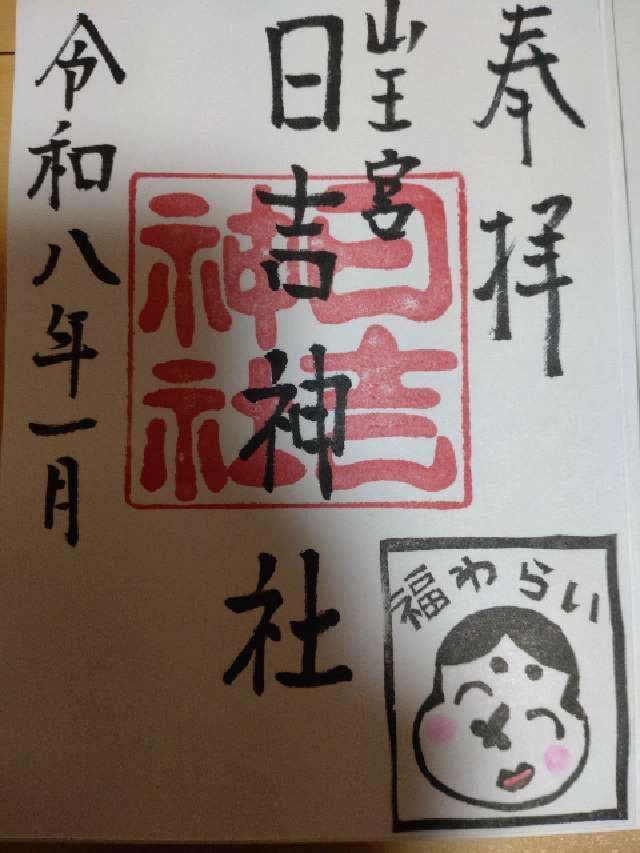 奉拝
山王宮
日吉神社
日吉
神社
令和八年一月
福わらい